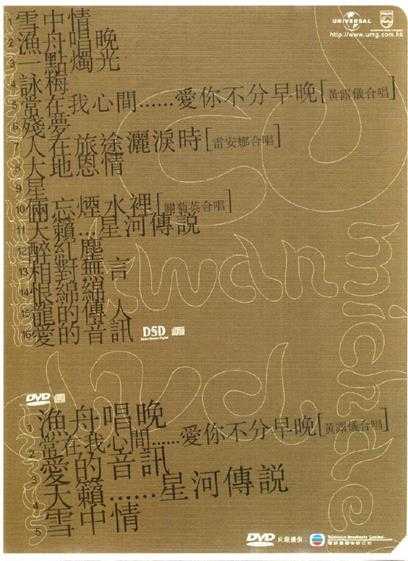 UNIVERSAL
PHILIPS
http://www.umg.com.hk
1 雪中情
2 漁舟唱晚
3 一點燭光
4 詠梅
5 常在我心間......愛你不分早晚[黃露儀合唱]
6 殘夢
7 人在旅途灑淚時[雷安娜合唱]
8 大地恩情
9 星
10 倆忘煙水裡[關菊英合唱]
11 天籟...星河傳説
12 醉紅塵
13 相對無言
14 恨綿綿
15 龍的傳人
16 愛的音訊
DSD
kwan
michael
DVD
1 漁舟唱晚
2 常在我心間......愛你不分早晚[黃露儀合唱]
3 愛的音訊
4 天籟......星河傳説
5 雪中情
DVD
Television Broadcasts Limited
電視廣播有限公司